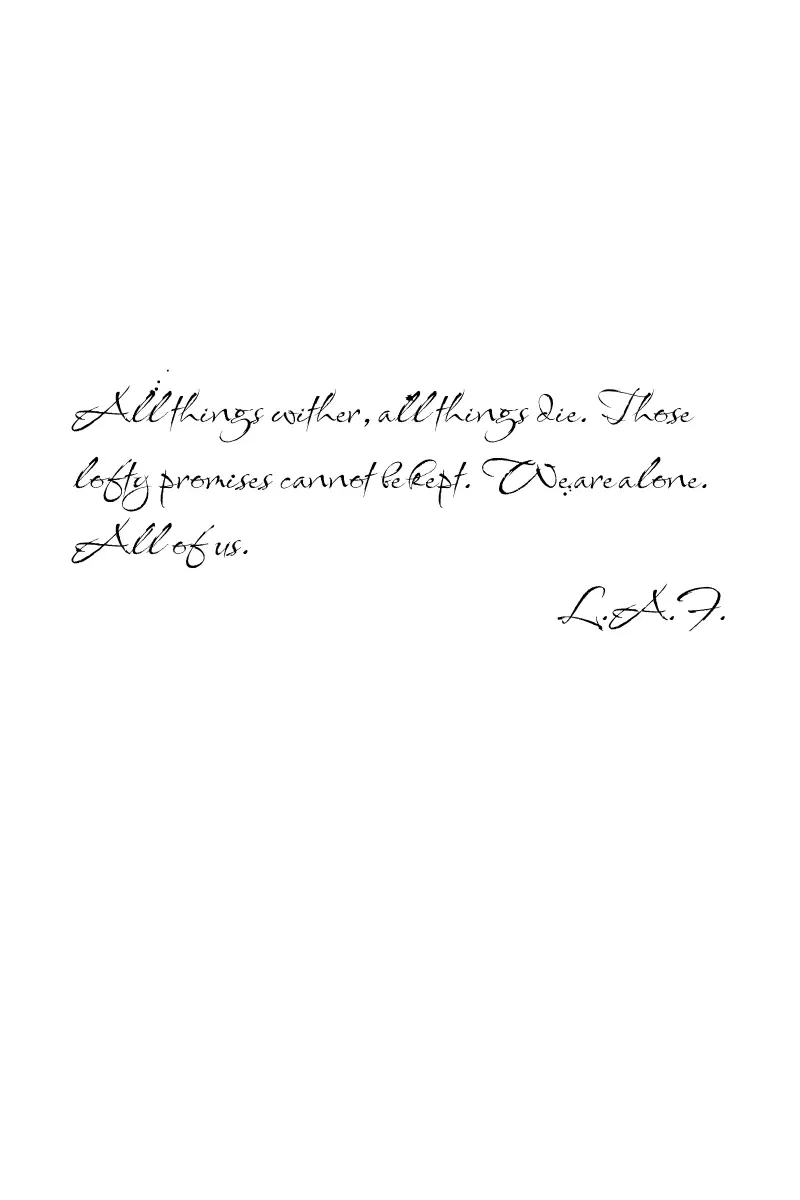 All things wither, all things die. Those
lofty promises cannot be kept. We are alone.
All of us.
L.A.F.